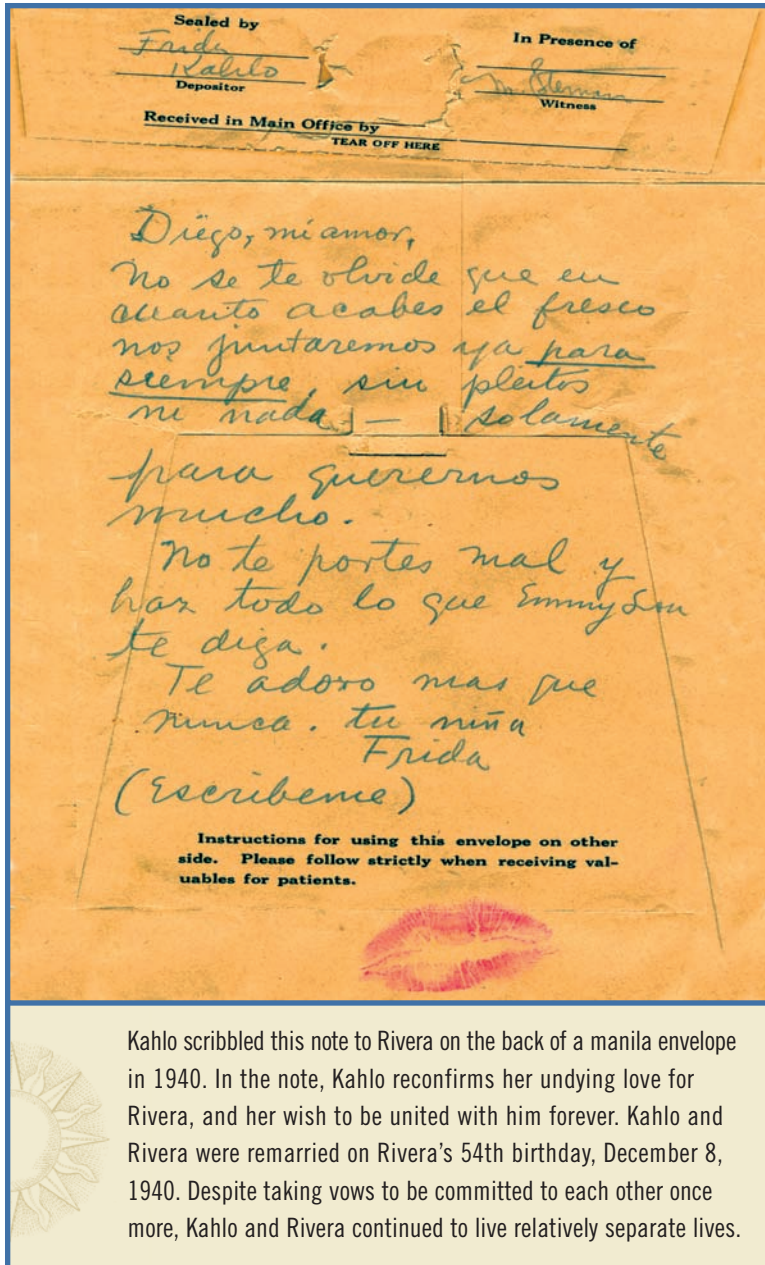 Sealed by
Frida
Kahlo
Depositor
In Presence of
Witness
Received in Main Office by
TEAR OFF HERE
Diego, mi amor,
No se te olvide que en
cuanto acabes el fresco
nos juntaremos ya para
siempre, sin pleitos
ni nada — solamente
para querernos
mucho.
No te portes mal y
haz todo lo que Emmy Lou
te diga.
Te adoro mas que
nunca. tu niña
Frida
(Escribeme)
Instructions for using this envelope on other
side. Please follow strictly when receiving val-
uables for patients.
Kahlo scribbled this note to Rivera on the back of a manila envelope
in 1940. In the note, Kahlo reconfirms her undying love for
Rivera, and her wish to be united with him forever. Kahlo and
Rivera were remarried on Rivera's 54th birthday, December 8,
1940. Despite taking vows to be committed to each other once
more, Kahlo and Rivera continued to live relatively separate lives.